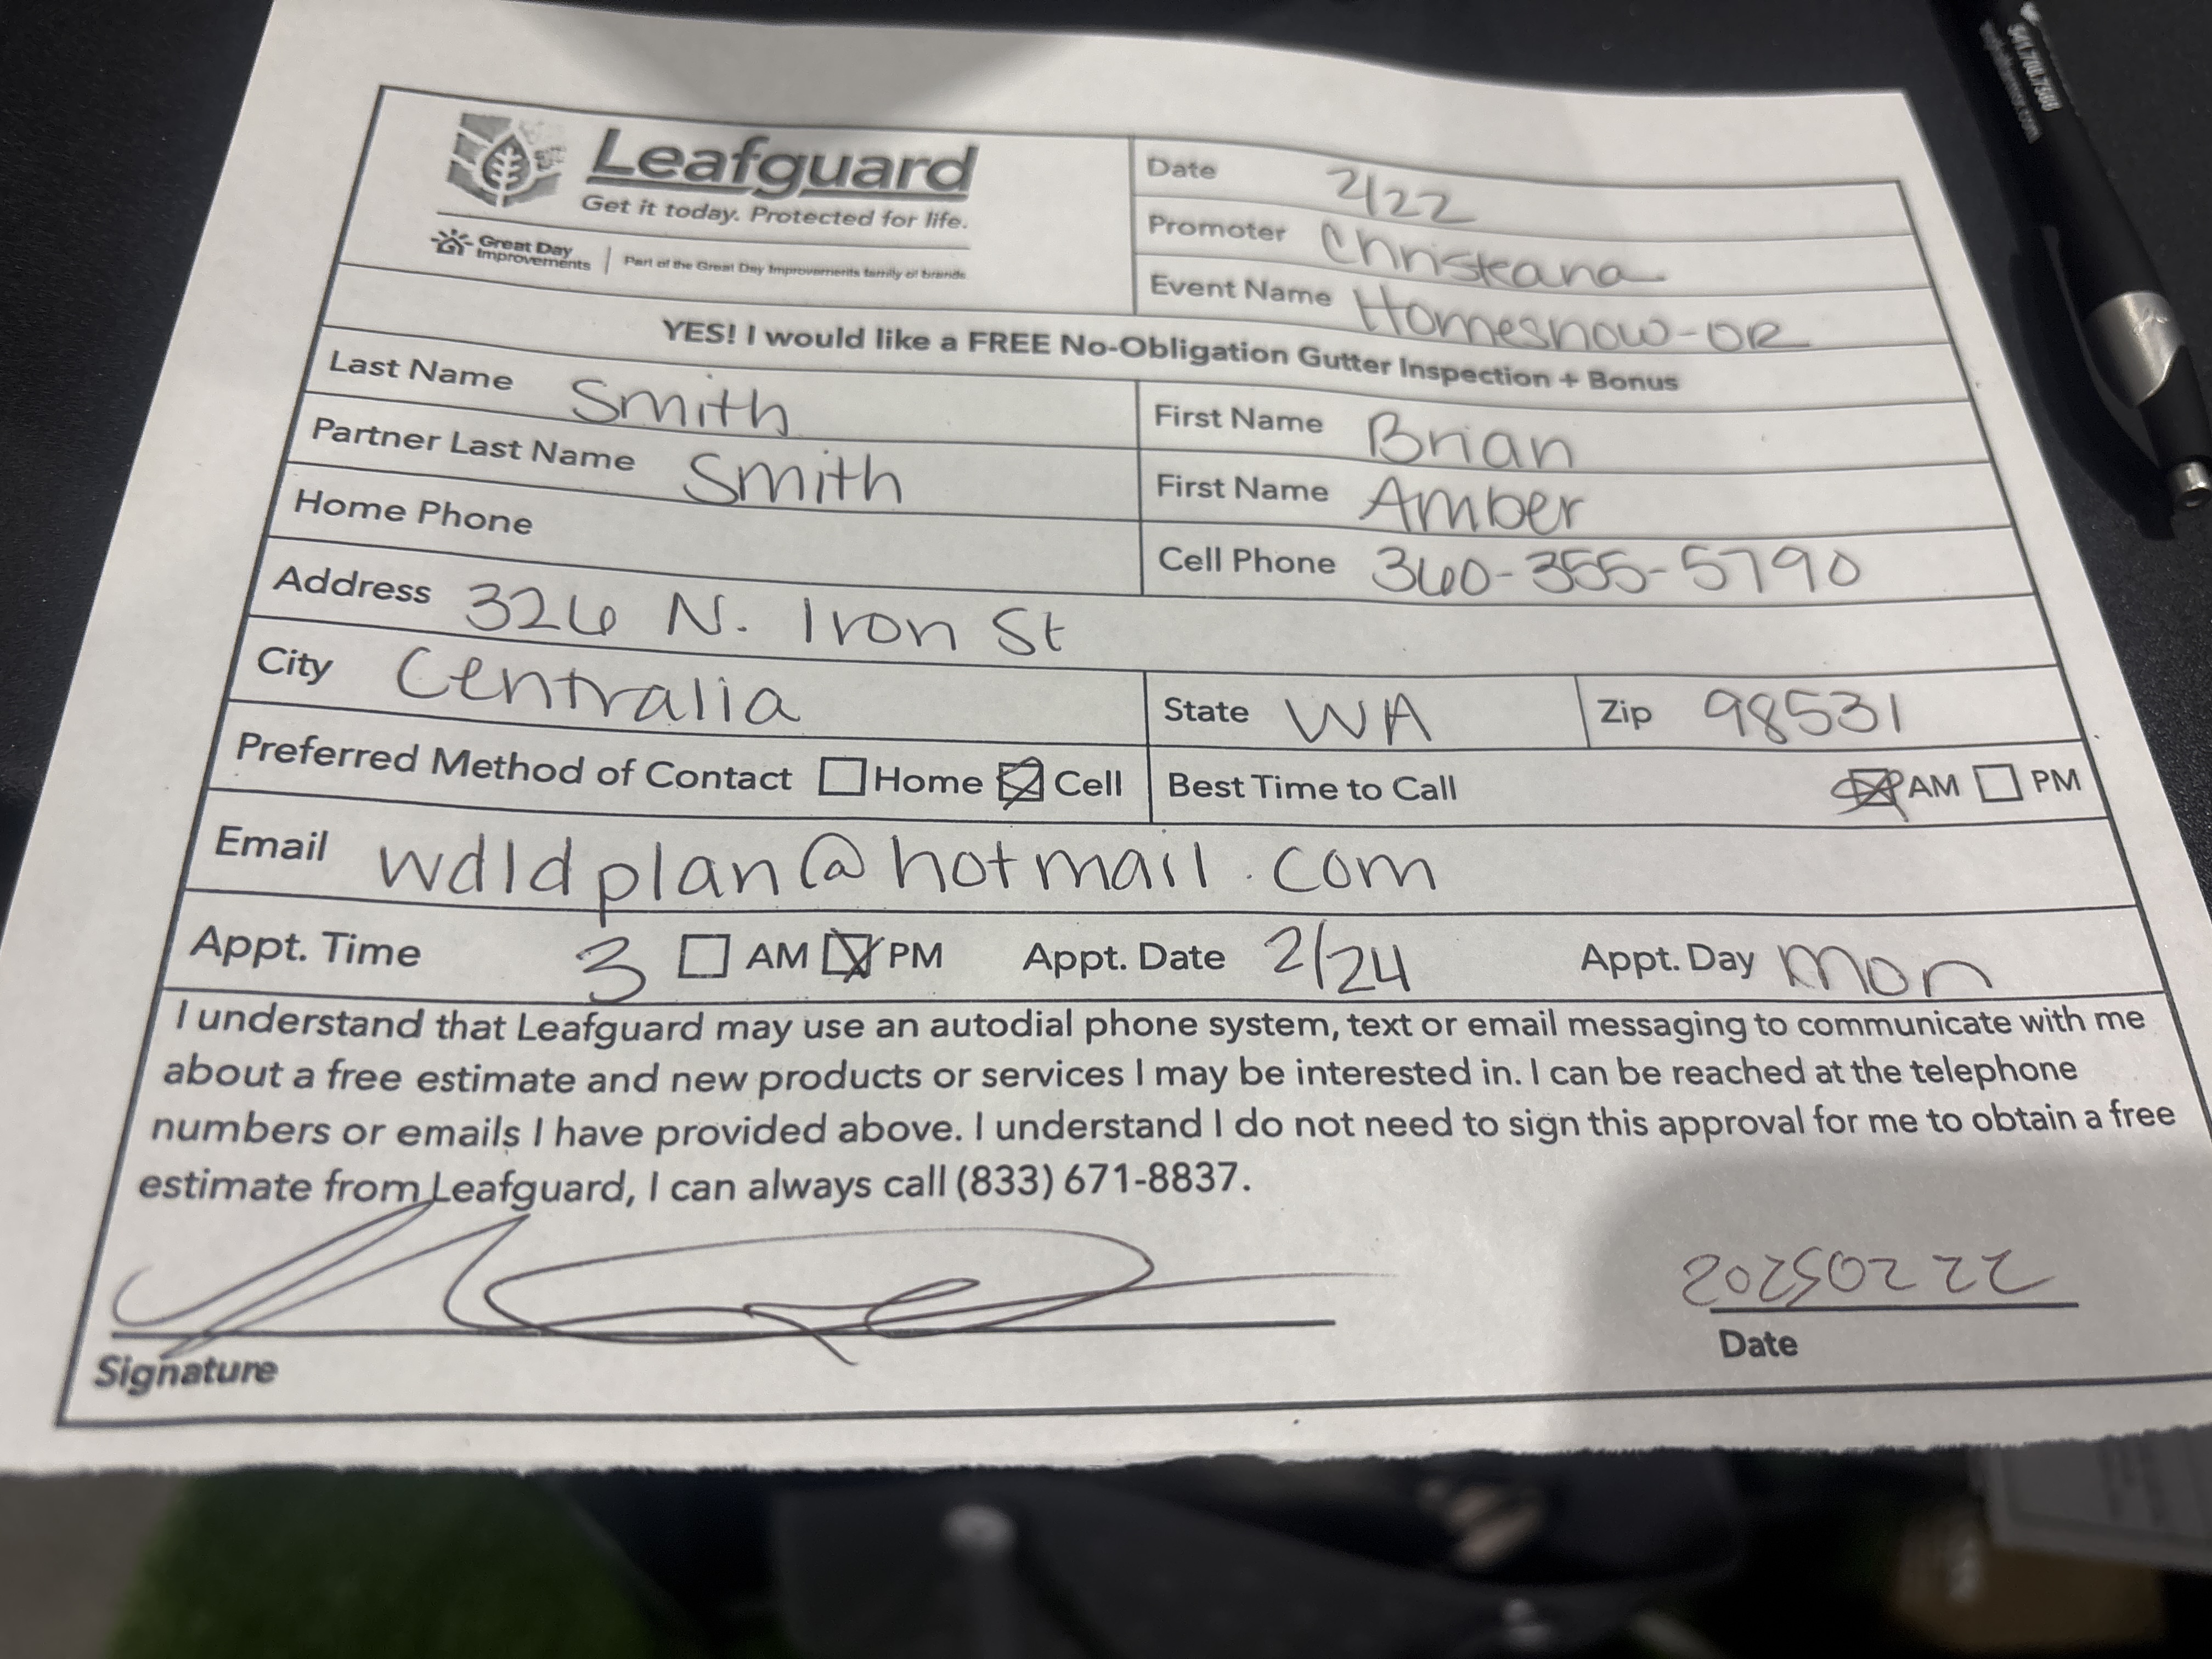 Leafguard
Get it today. Protected for life.
Great Day Improvements | Part of the Great Day Improvements family of brands
Date 2/22
Promoter Christeana
Event Name Homeshow-OR
YES! I would like a FREE No-Obligation Gutter Inspection + Bonus
Last Name Smith First Name Brian
Partner Last Name Smith First Name Amber
Home Phone Cell Phone 360-355-5790
Address 326 N. Iron St
City Centralia State WA Zip 98531
Preferred Method of Contact ☐ Home ☒ Cell Best Time to Call ☒ AM ☐ PM
Email wdldplan@hotmail.com
Appt. Time 3 ☐ AM ☒ PM Appt. Date 2/24 Appt. Day Mon
I understand that Leafguard may use an autodial phone system, text or email messaging to communicate with me
about a free estimate and new products or services I may be interested in. I can be reached at the telephone
numbers or emails I have provided above. I understand I do not need to sign this approval for me to obtain a free
estimate from Leafguard, I can always call (833) 671-8837.
20250222
Signature Date
541.708.7588